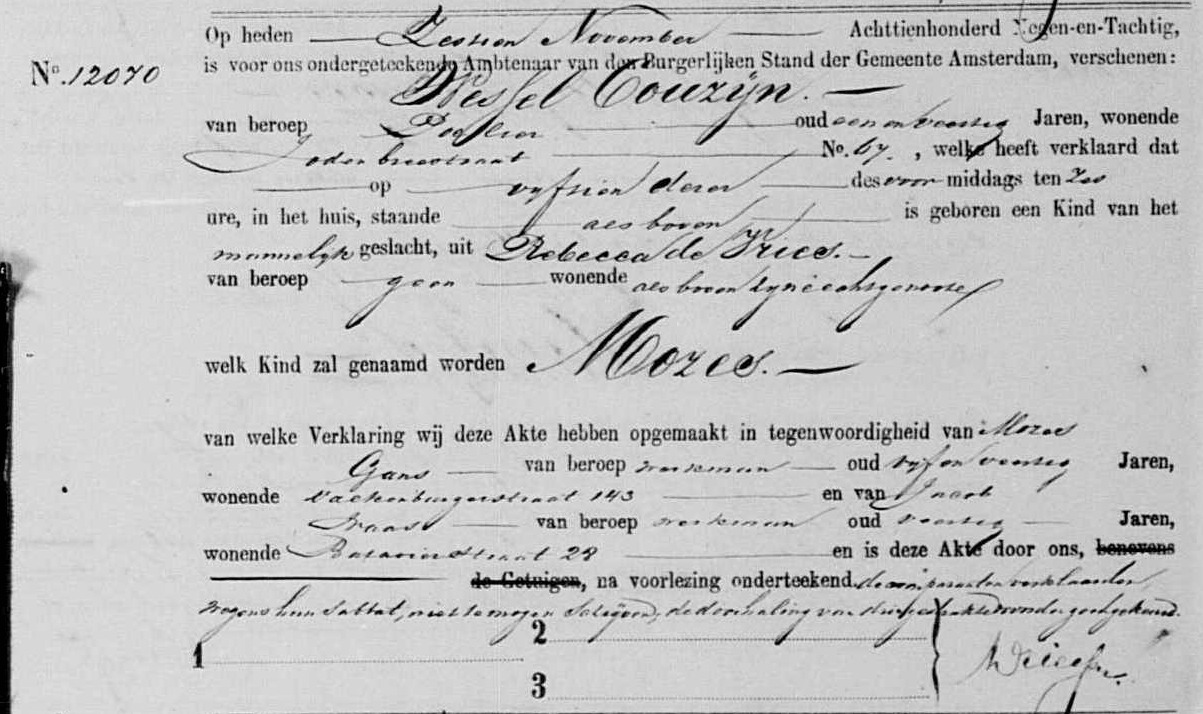 Op heden Zestien November Achttienhonderd Negen-en-Tachtig,
No. 12070 is voor ons ondergeteekende Ambtenaar van den Burgerlijken Stand der Gemeente Amsterdam, verschenen:
Wessel Couzijn.
van beroep oud een en veertig Jaren, wonende
Jodenbreestraat No. 67, welke heeft verklaard dat
op vijftien dezer des voor middags ten zes
ure, in het huis, staande als boven is geboren een Kind van het
mannelijk geslacht, uit Rebecca de Vries.
van beroep geen wonende als boven zijne echtgenoote
welk Kind zal genaamd worden Mozes.
van welke Verklaring wij deze Akte hebben opgemaakt in tegenwoordigheid van Mozes
Gans van beroep werkman oud vijf en veertig Jaren,
wonende Valkenburgerstraat 143 en van Jacob
van beroep werkman oud veertig Jaren,
wonende Bataviastraat 28 en is deze Akte door ons, benevens
de Getuigen, na voorlezing onderteekend. de comparanten verklaarden
wegens hun sabbat, niet te mogen teekenen, de doorhaling van drie gedrukte woorden goedgekeurd.
1
2
3